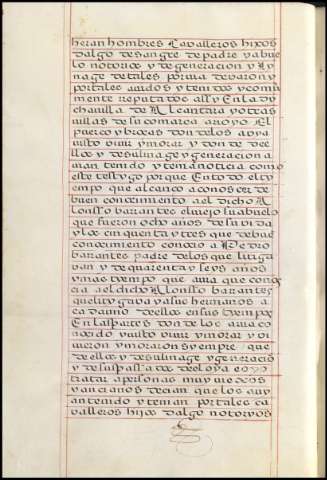 heran hombres Cavalleros hixos
dalgo desangre de padre y abue
lo notorios y de generacion y ly
nage de tales por via de varon y
por tales avidos y tenidos y comu
mente reputados assy en la dy
cha villa de Alcantara y otras
villas de su comarca arroyo El
puerco y broxas donde los avya
visto vivir y morar y donde de
ellos y de su linage y generacion a
vian tenido y tenia noticia como
este testygo porque En todo el ty
empo que alcanço a conoscer de
buen conocimiento a el dicho A
lonsso barrantes el viejo su abuelo
que fueron ocho años de su vida
y los cinquenta y tres que de bue
conocimiento conocio a Pedro
barantes padre de los que litiga
ban y de quarenta y seys años
y mas tyempo que avia que cono
cia a el dicho Alonsso barantes
que litygava y a sus hermanos a
cada uno de ellos en sus tyempos
En las partes donde los avia co
nocido y visto vivir y morar y vi
vieron y moraron syempre que
de ellos y de su linage y generacio
y de sus passados de ellos oya e oyo
tratar a personas muy viexos
y ancianos decian que los avy
an tenido y tenian por tales ca
valleros hijos dalgo notoryos